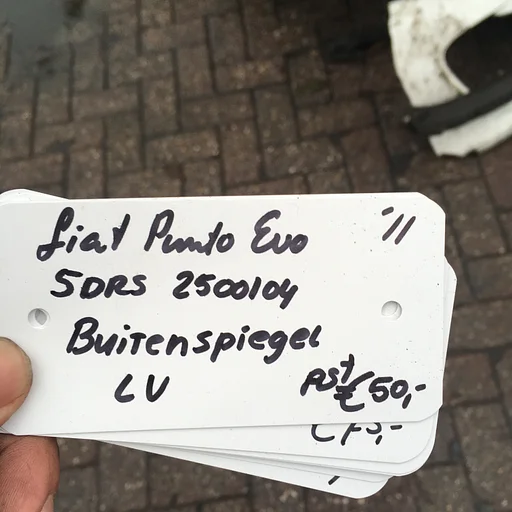 Fiat Punto Evo '11
5DRS 2500104
Buitenspiegel
LV
€50,-